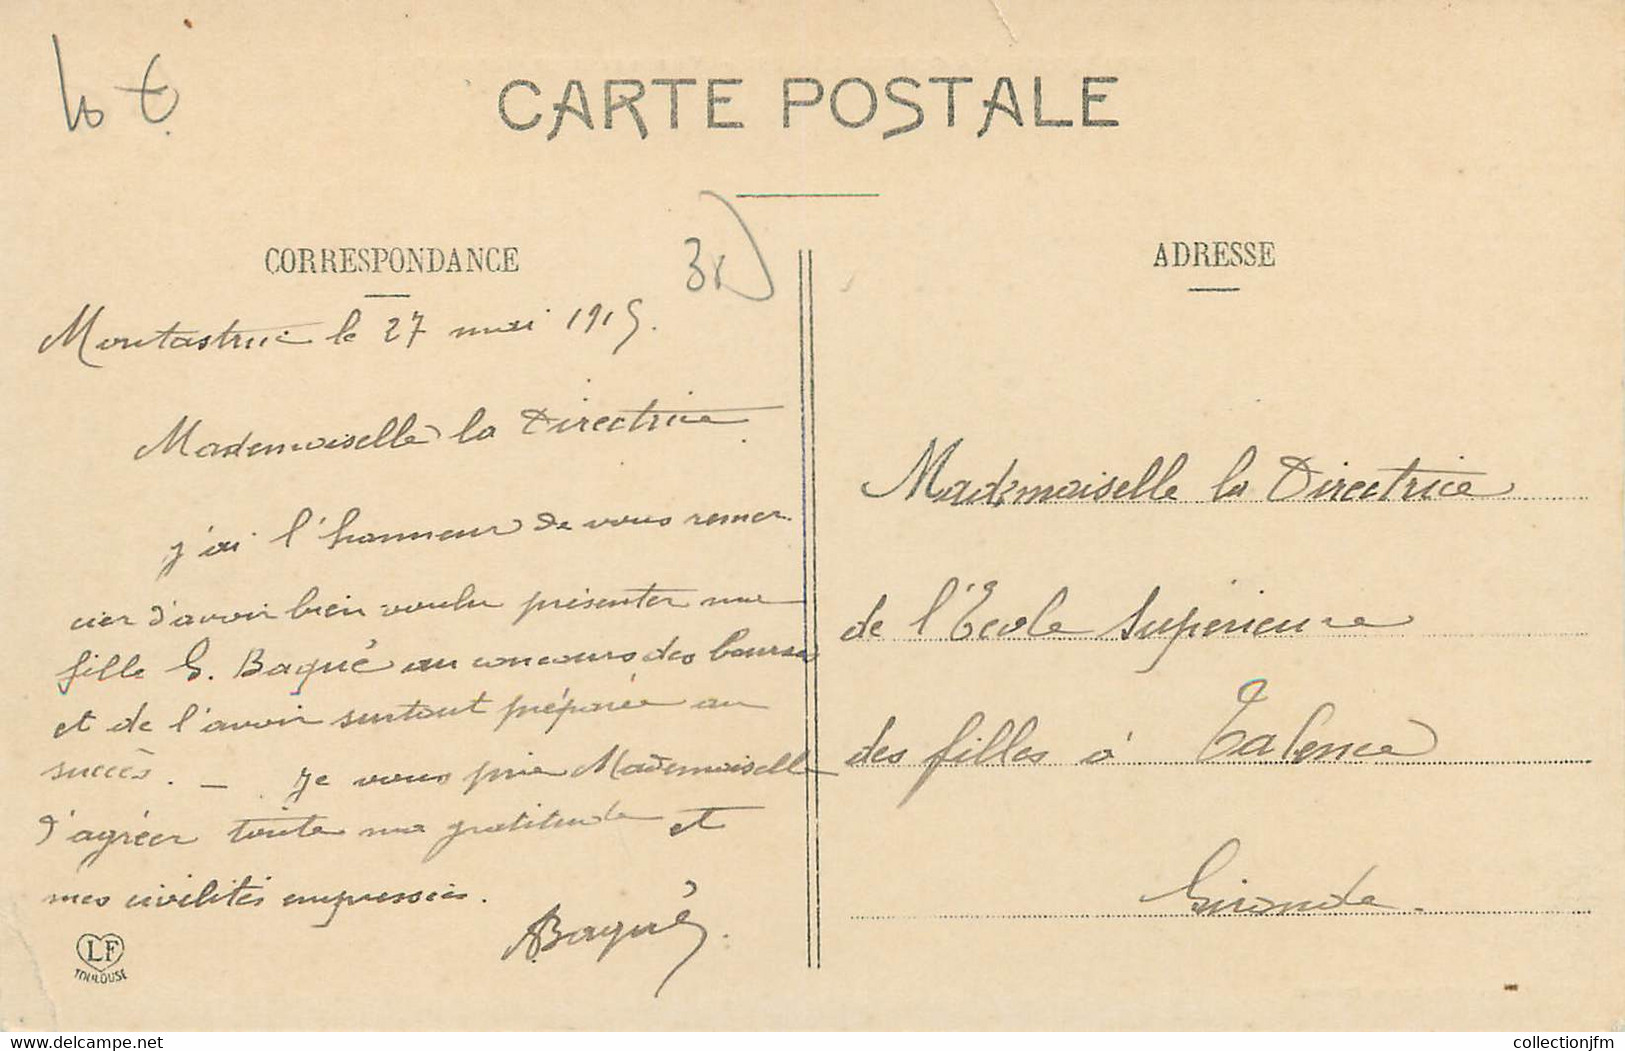 10 €
CARTE POSTALE
CORRESPONDANCE
Montastruc le 27 mai 1915.
Mademoiselle la Directrice
j'ai l'honneur de vous remer
cier d'avoir bien voulu présenter ma
fille G. Baqué au concours des bourses
et de l'avoir surtout préparée au
succès. — Je vous prie Mademoiselle
d'agréer toute ma gratitude et
mes civilités empressées.
ABaqué
LF
TOULOUSE
ADRESSE
Mademoiselle la Directrice
de l'Ecole Supérieure
des filles à Talence
Gironde.
www.delcampe.net
collectionjfm